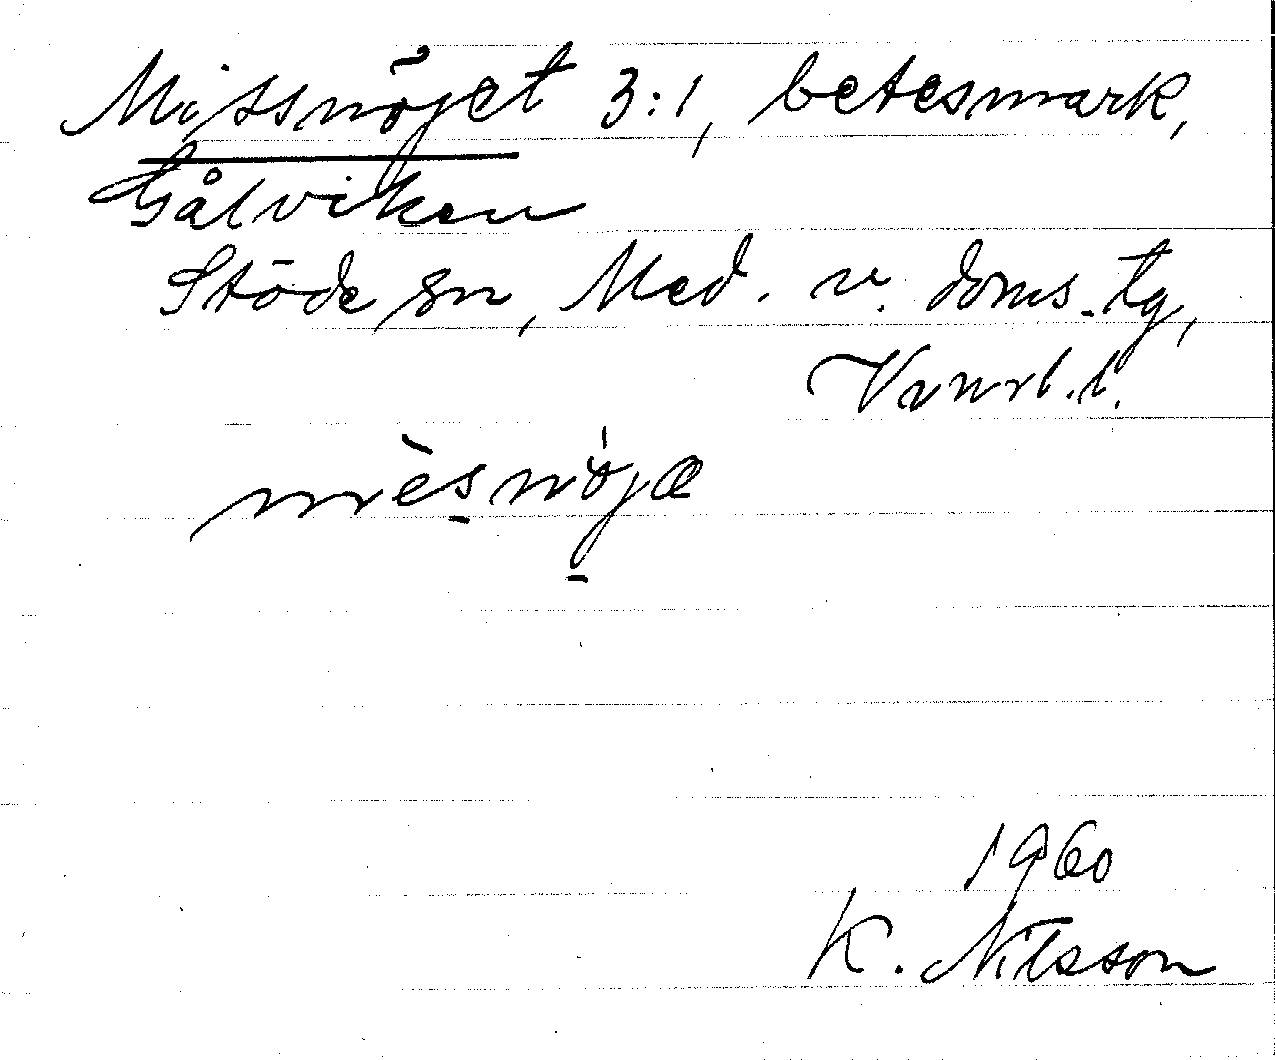 Missnöjet 3:1, betesmark,
Gålviken
Stöde sn, Med. v. doms. tg,
Vnrl. l.
mèsnöja
1960
K. Nilsson